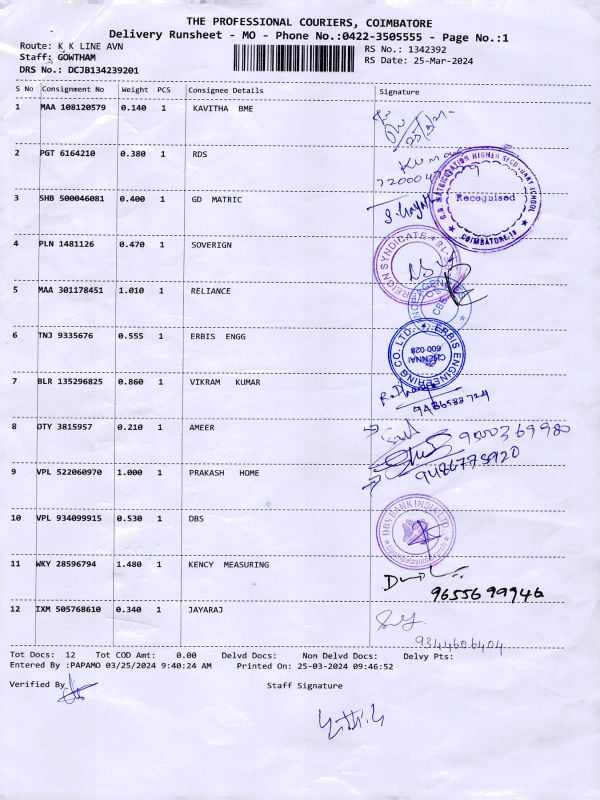 THE PROFESSIONAL COURIERS, COIMBATORE
Delivery Runsheet - MO - Phone No.:0422-3505555 - Page No.:1
Route: K K LINE AVN
RS No.: 1342392
Staff: GOWTHAM
RS Date: 25-Mar-2024
DRS No.: DCJB134239201
S No Consignment No Weight PCS Consignee Details Signature
1 MAA 108120579 0.140 1 KAVITHA BME
2 PGT 6164210 0.380 1 RDS
Kumar
3 SHB 500046081 0.400 1 GD MATRIC
G.D. MATRICULATION HIGHER SECONDARY SCHOOL
Recognised
COIMBATORE-18
4 PLN 1481126 0.470 1 SOVERIGN
5 MAA 301178451 1.010 1 RELIANCE
6 TNJ 9335676 0.555 1 ERBIS ENGG
ERBIS ENGINEERING CO. LTD.
CHENNAI
600 028
7 BLR 135296825 0.860 1 VIKRAM KUMAR
9486582724
8 OTY 3815957 0.210 1 AMEER
9500369980
9 VPL 522060970 1.000 1 PRAKASH HOME
9486775920
10 VPL 934099915 0.530 1 DBS
DBS BANK INDIA LTD.
11 WKY 28596794 1.480 1 KENCY MEASURING
9655699946
12 IXM 505768610 0.340 1 JAYARAJ
9344606404
Tot Docs: 12 Tot COD Amt: 0.00 Delvd Docs: Non Delvd Docs: Delvy Pts:
Entered By :PAPAMO 03/25/2024 9:40:24 AM Printed On: 25-03-2024 09:46:52
Verified By
Staff Signature